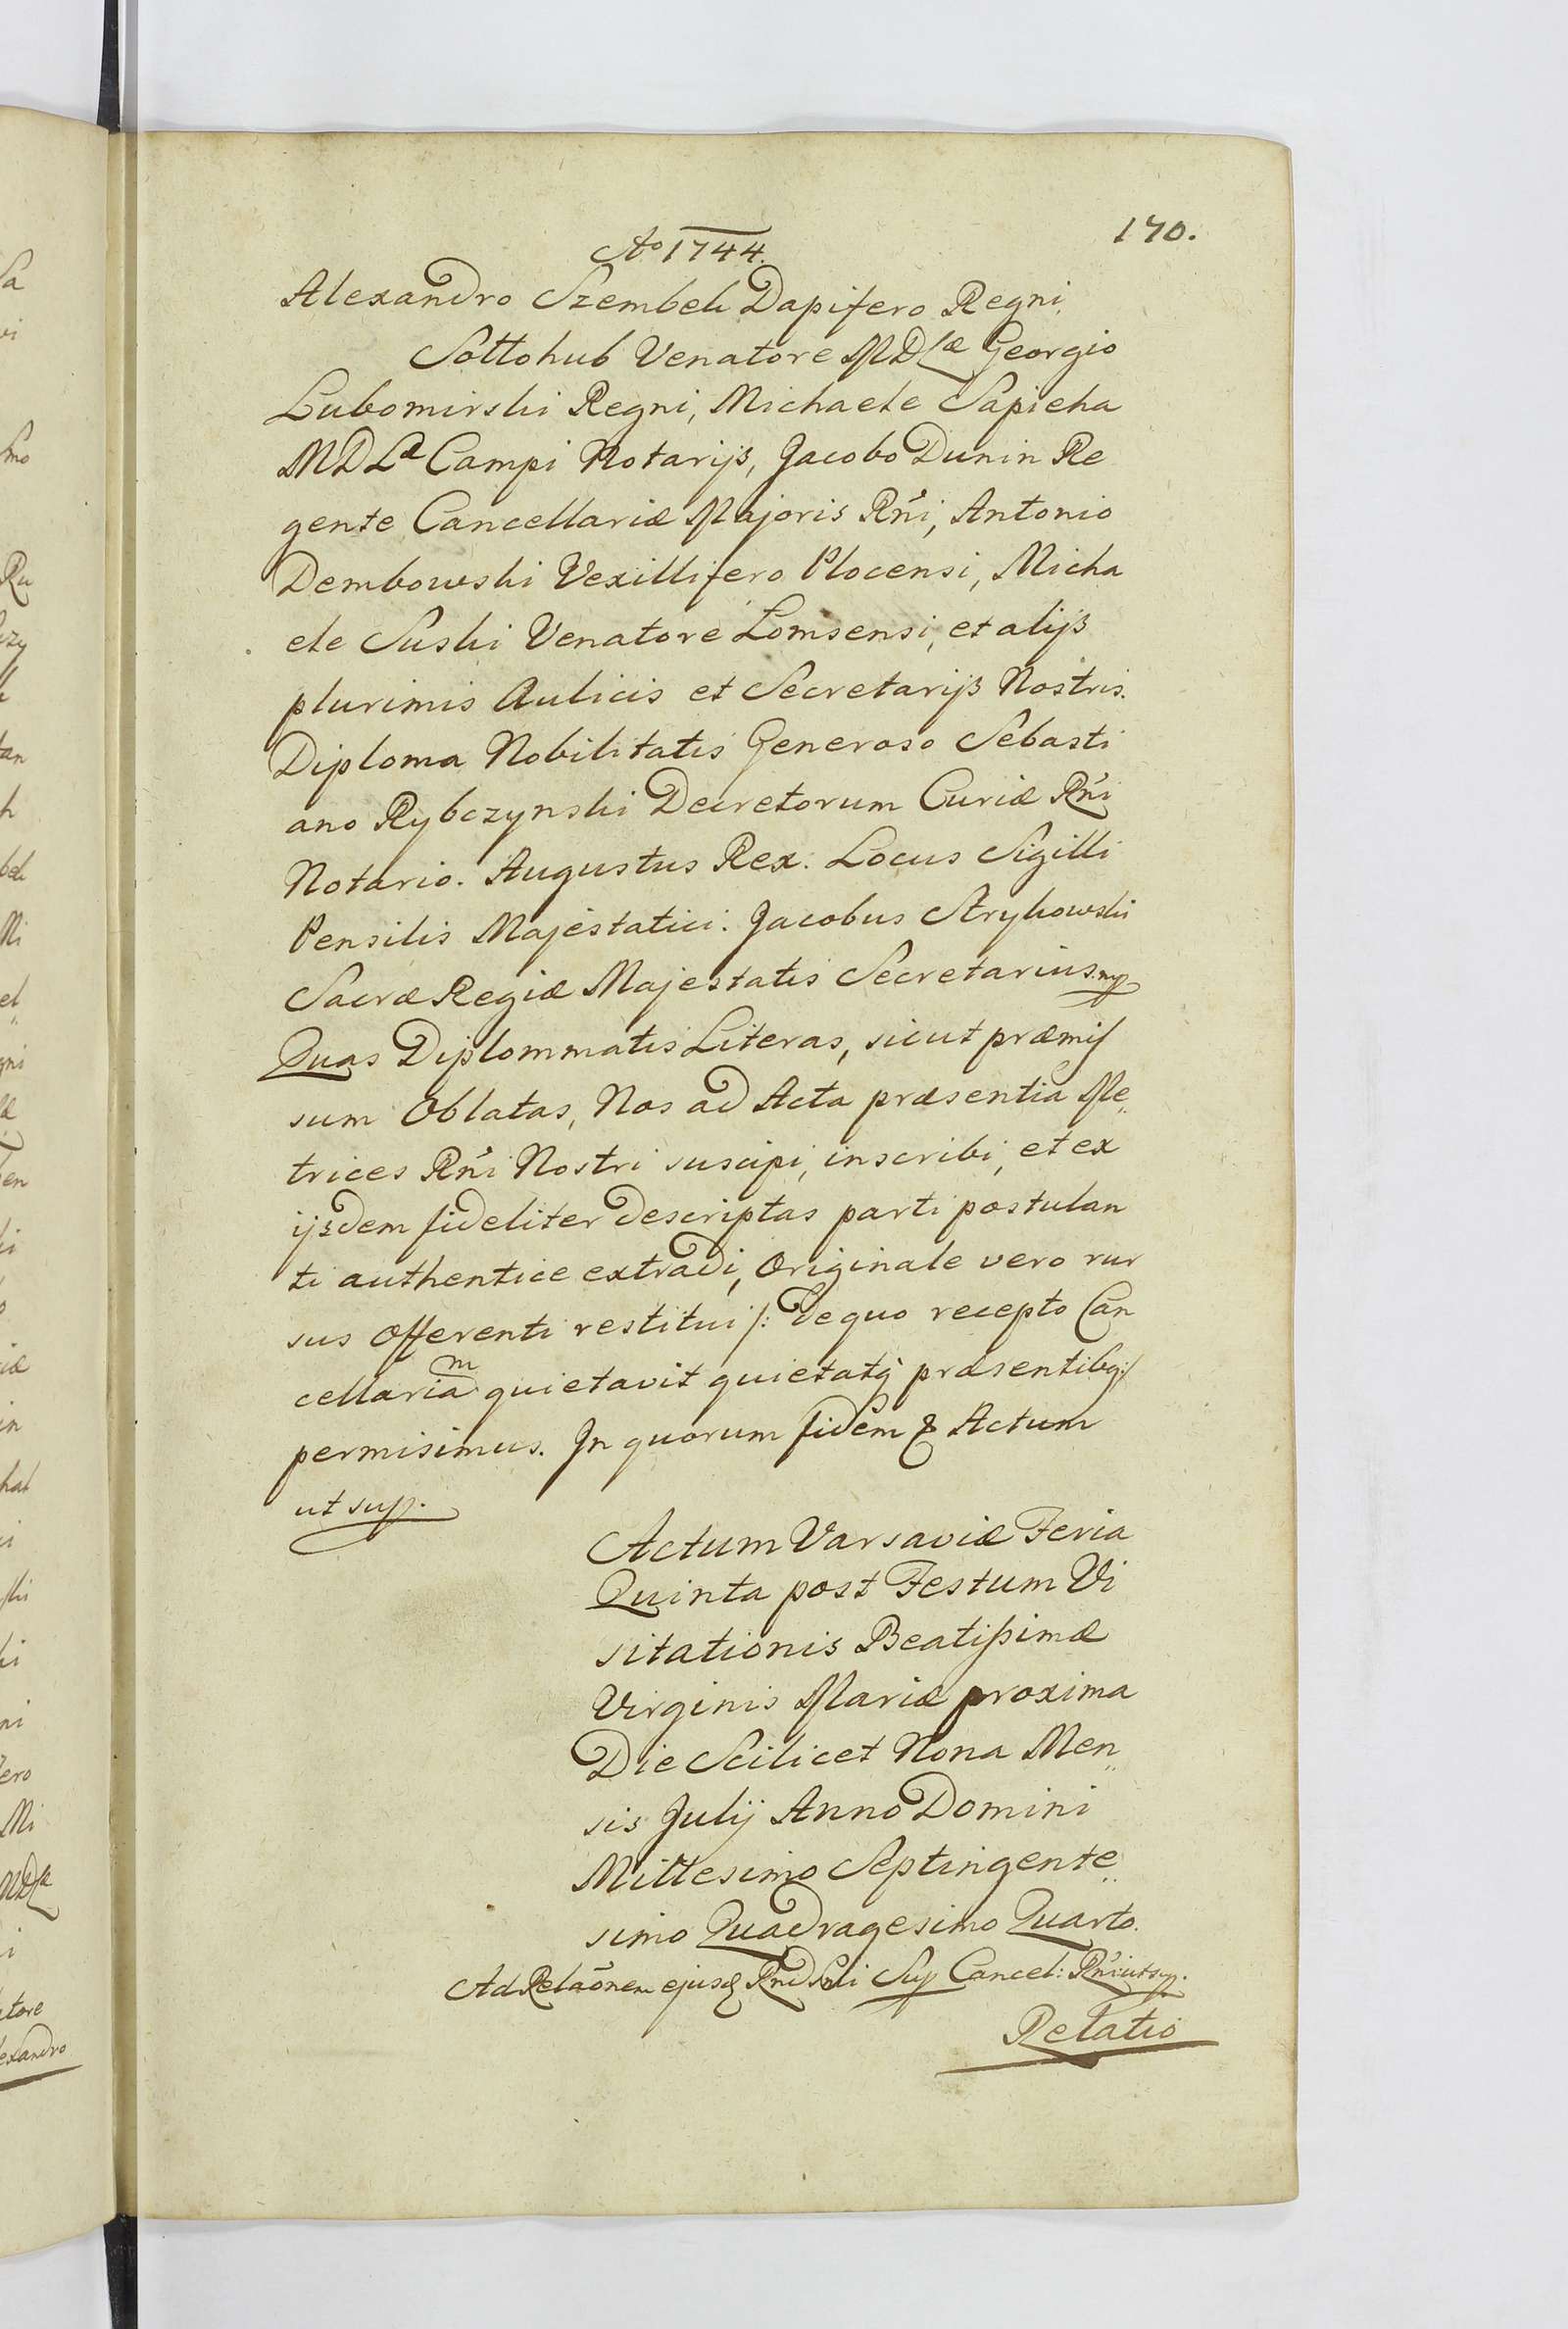 170.
Aº 1744.
Alexandro Szembek Dapifero Regni
Sottohub Venatore MDLæ Georgio
Lubomirski Regni, Michaele Sapieha
MDLæ Campi Notarijs, Jacobo Dunin Re
gente Cancellariæ Majoris Rñi, Antonio
Dembowski Vexillifero Plocensi, Micha
ele Suski Venatore Lomsensi, et alijs
plurimis Aulicis et Secretarijs Nostris.
Diploma Nobilitatis Generoso Sebasti
ano Rybczynski Decretorum Curiæ Rñi
Notario. Augustus Rex. Locus Sigilli
Pensilis Majestatici. Jacobus Strykowski
Sacræ Regiæ Majestatis Secretarius mp
Quas Diplommatis Literas, sicut præmis
sum Oblatas, Nos ad Acta præsentia Me„
trices Rñi Nostri suscipi, inscribi, et ex
ijsdem fideliter descriptas parti postulan
ti authentice extradi, Originale vero rur
sus Offerenti restitui /: de quo recepto Can
cellariam quietavit quietatq præsentibq :/
permisimus. In quorum fidem & Actum
ut sup.
Actum Varsaviæ Feria
Quinta post Festum Vi
sitationis Beatissimæ
Virginis Mariæ proxima
Die Scilicet Nona Men„
sis Julij Anno Domini
Millesimo Septingente„
simo Quadragesimo Quarto.
Ad Relaõnem ejusd Sup Cancel: Rñi ut sup.
Relatio